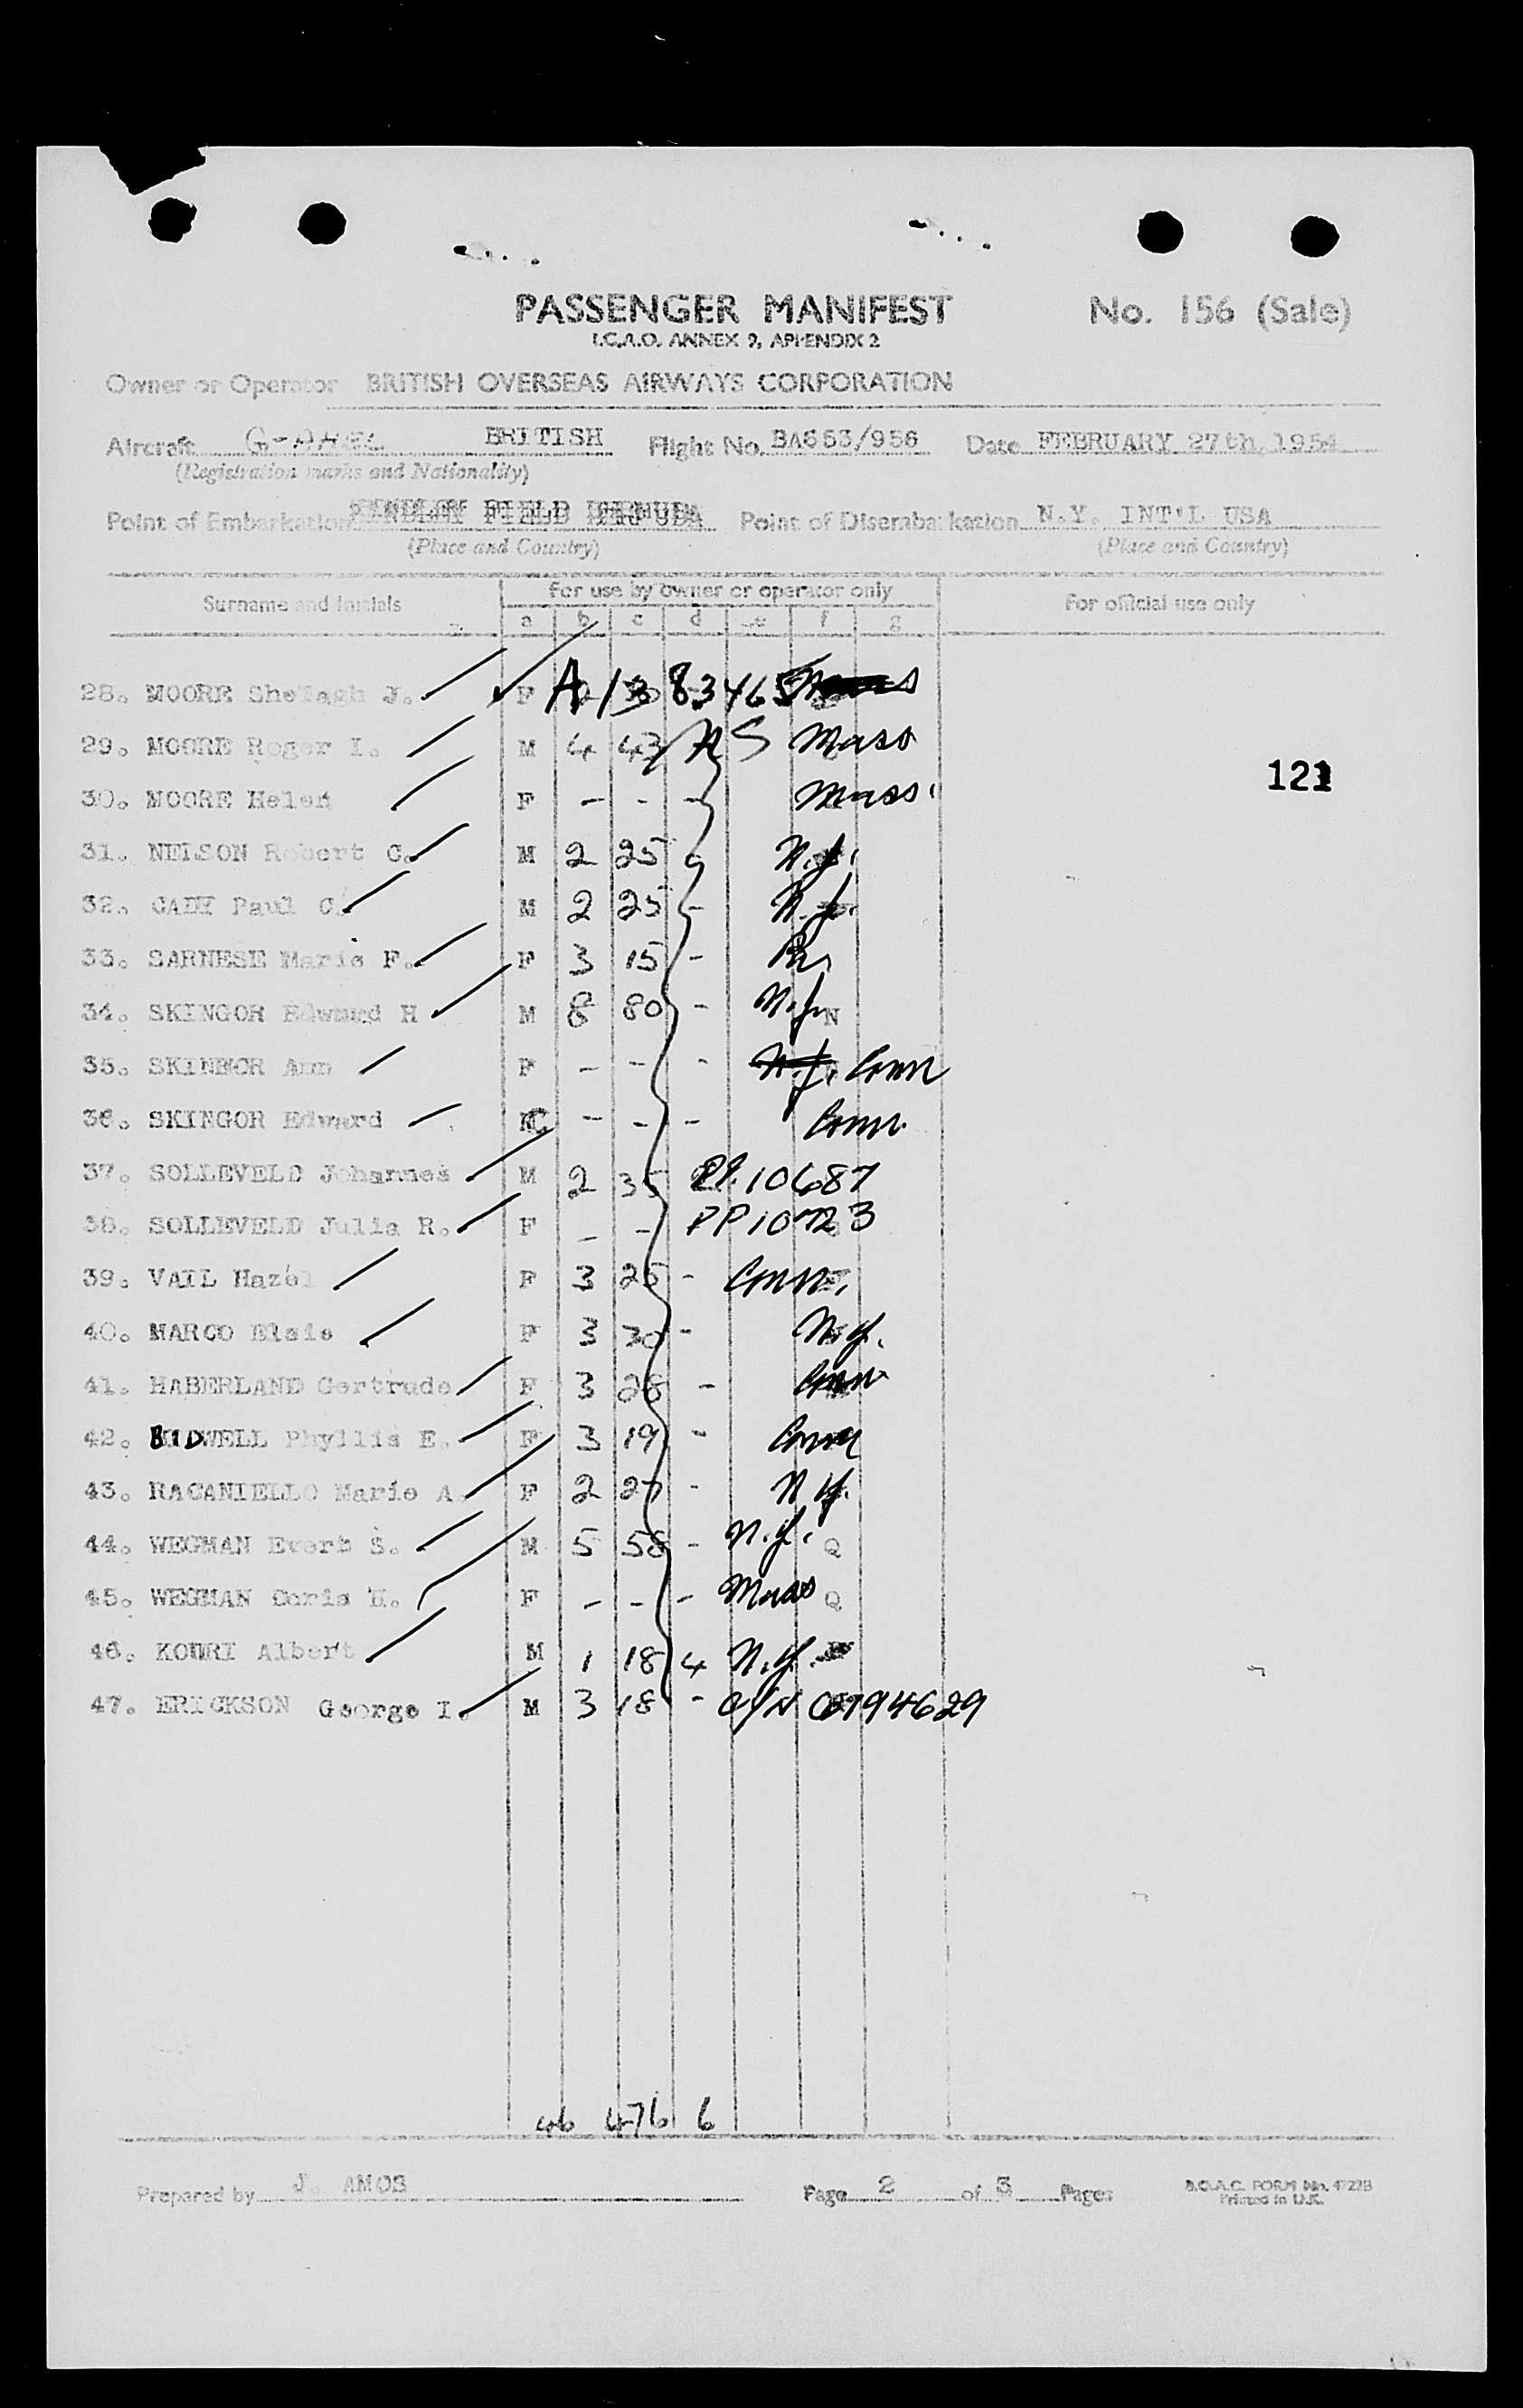 PASSENGER MANIFEST No. 156 (Sale)
I.C.A.O. ANNEX 9, APPENDIX 2
Owner or Operator BRITISH OVERSEAS AIRWAYS CORPORATION
Aircraft BRITISH Flight No. Date FEBRUARY 27th, 1954
(Registration marks and Nationality)
Point of Embarkation FIELD Point of Disembarkation N.Y. INT'L USA
(Place and Country) (Place and Country)
Surname and Initials For use by owner or operator only For official use only
a b c d e f g
28. MOORE Shelagh J. F A/3 83465
29. MOORE Roger I. M 4 43 Mass
30. MOORE Helen F - - - Mass.
121
31. NELSON Robert C. M 2 25 N.J.
32. CADY Paul C. M 2 25 - N.J.
33. SARNESE Marie F. F 3 15 - Pa
34. SKINGOR Edward H M 8 80 - N.J. N
35. Ann F - - - N.J. Conn
36. SKINGOR Edward C - - - Conn.
37. SOLLEVELD Johannes M 2 35 PP.10687
38. SOLLEVELD Julia R. F - - PP10723
39. VAIL Hazel F 3 25 - Conn.
40. MARCO Elsie F 3 30 - N.Y.
41. HABERLAND Gertrude F 3 28 - Conn
42. BIDWELL Phyllis E. F 3 19 - Conn
43. RACANIELLO Marie A. F 2 27 - N.Y.
44. WEGMAN Evert S. M 5 58 - N.Y. Q
45. WEGMAN Doris H. F - - - Mass Q
46. KOURI Albert M 1 18 4 N.Y.
47. ERICKSON George I. M 3 18 - C/N
46 476 6
Prepared by J. AMOS Page 2 of 3 Pages B.O.A.C. FORM No.
Printed in U.K.